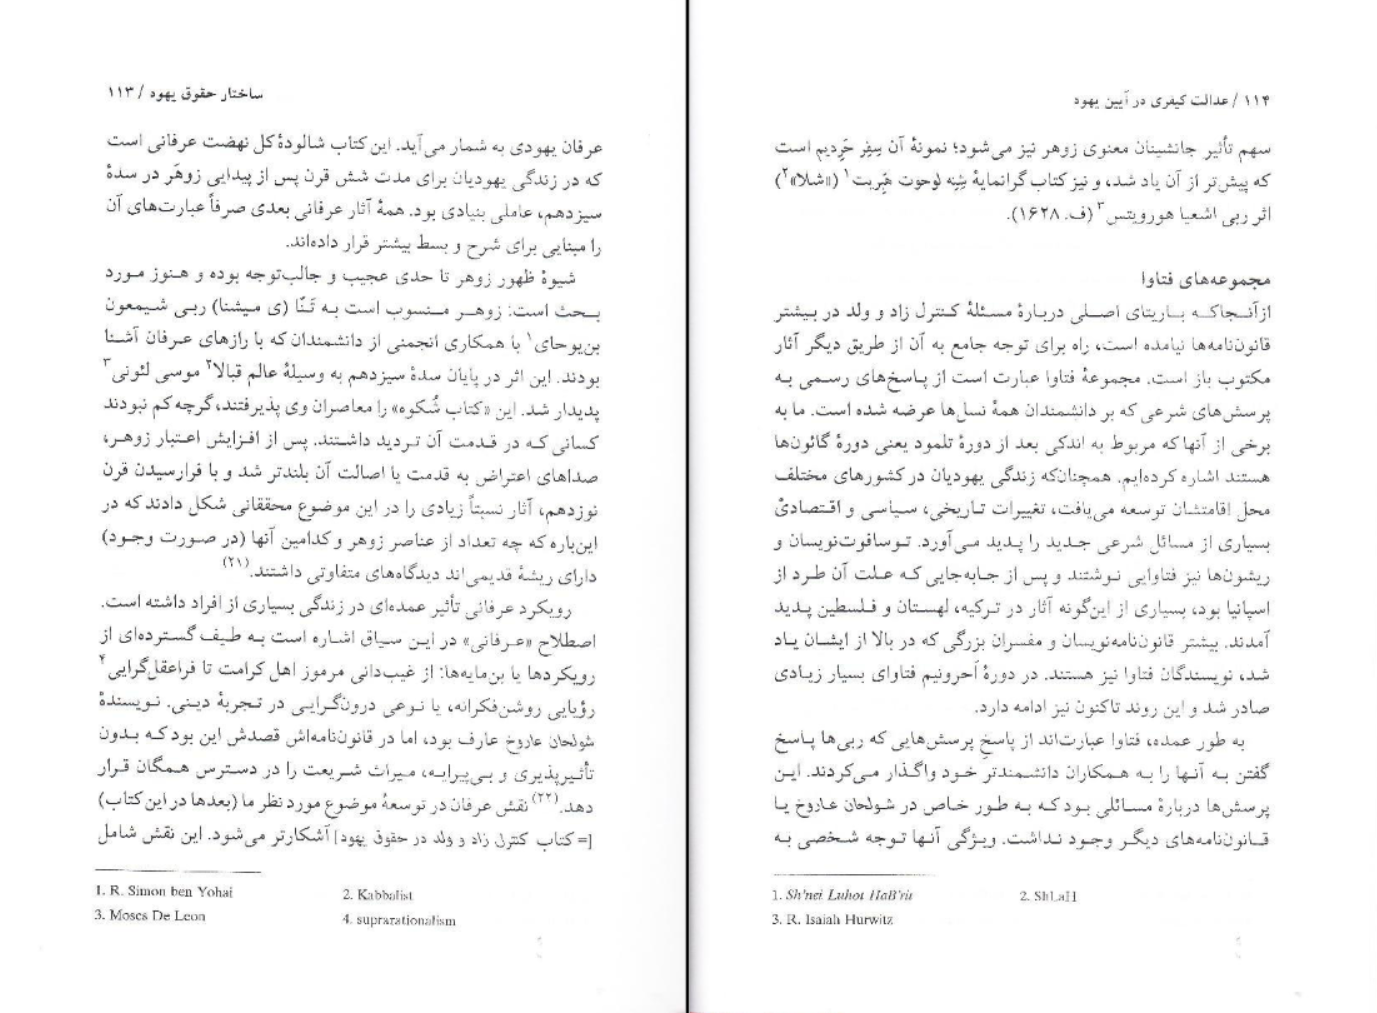 ساختار حقوق یهود / ۱۱۳
عرفان یهودی به شمار می‌آید. این کتاب شالودهٔ کل نهضت عرفانی است
که در زندگی یهودیان برای مدت شش قرن پس از پیدایی زوهَر در سدهٔ
سیزدهم، عاملی بنیادی بود. همهٔ آثار عرفانی بعدی صرفاً عبارت‌های آن
را مبنایی برای شرح و بسط بیشتر قرار داده‌اند.
شیوهٔ ظهور زوهر تا حدی عجیب و جالب‌توجه بوده و هنوز مورد
بحث است: زوهر منسوب است به تَنّا (ی میشنا) ربی شیمعون
بن‌یوحای۱ با همکاری انجمنی از دانشمندان که با رازهای عرفان آشنا
بودند. این اثر در پایان سدهٔ سیزدهم به وسیلهٔ عالم قبالا۲ موسی لئونی۳
پدیدار شد. این «کتاب شُکوه» را معاصران وی پذیرفتند، گرچه کم نبودند
کسانی که در قدمت آن تردید داشتند. پس از افزایش اعتبار زوهر،
صداهای اعتراض به قدمت یا اصالت آن بلندتر شد و با فرارسیدن قرن
نوزدهم، آثار نسبتاً زیادی را در این موضوع محققانی شکل دادند که در
این‌باره که چه تعداد از عناصر زوهر و کدامین آنها (در صورت وجود)
دارای ریشهٔ قدیمی‌اند دیدگاه‌های متفاوتی داشتند.(۲۱)
رویکرد عرفانی تأثیر عمده‌ای در زندگی بسیاری از افراد داشته است.
اصطلاح «عرفانی» در این سیاق اشاره است به طیف گسترده‌ای از
رویکردها یا بن‌مایه‌ها: از غیب‌دانی مرموز اهل کرامت تا فراعقل‌گرایی۴
رؤیایی روشن‌فکرانه، یا نوعی درون‌گرایی در تجربهٔ دینی. نویسندهٔ
شولحان عاروخ عارف بود، اما در قانون‌نامه‌اش قصدش این بود که بدون
تأثیرپذیری و بی‌پیرایه، میراث شریعت را در دسترس همگان قرار
دهد.(۲۲) نقش عرفان در توسعهٔ موضوع مورد نظر ما (بعدها در این کتاب)
[= کتاب کنترل زاد و ولد در حقوق یهود] آشکارتر می‌شود. این نقش شامل
1. R. Simon ben Yohai 2. Kabbalist
3. Moses De Leon 4. suprarationalism
۱۱۴ / عدالت کیفری در آیین یهود
سهم تأثیر جانشینان معنوی زوهر نیز می‌شود؛ نمونهٔ آن سِفِر حَرِدیم است
که پیش‌تر از آن یاد شد، و نیز کتاب گرانمایهٔ شِنِه لوحوت هَبِریت۱ («شلا»۲)
اثر ربی اشعیا هورویتس۳ (ف. ۱۶۲۸).
مجموعه‌های فتاوا
ازآنجاکه باریتای اصلی دربارهٔ مسئلهٔ کنترل زاد و ولد در بیشتر
قانون‌نامه‌ها نیامده است، راه برای توجه جامع به آن از طریق دیگر آثار
مکتوب باز است. مجموعهٔ فتاوا عبارت است از پاسخ‌های رسمی به
پرسش‌های شرعی که بر دانشمندان همهٔ نسل‌ها عرضه شده است. ما به
برخی از آنها که مربوط به اندکی بعد از دورهٔ تلمود یعنی دورهٔ گائون‌ها
هستند اشاره کرده‌ایم. همچنان‌که زندگی یهودیان در کشورهای مختلف
محل اقامتشان توسعه می‌یافت، تغییرات تاریخی، سیاسی و اقتصادیْ
بسیاری از مسائل شرعی جدید را پدید می‌آورد. توسافوت‌نویسان و
ریشون‌ها نیز فتاوایی نوشتند و پس از جابه‌جایی که علت آن طرد از
اسپانیا بود، بسیاری از این‌گونه آثار در ترکیه، لهستان و فلسطین پدید
آمدند. بیشتر قانون‌نامه‌نویسان و مفسران بزرگی که در بالا از ایشان یاد
شد، نویسندگان فتاوا نیز هستند. در دورهٔ اَحرونیم فتاوای بسیار زیادی
صادر شد و این روند تاکنون نیز ادامه دارد.
به طور عمده، فتاوا عبارت‌اند از پاسخِ پرسش‌هایی که ربی‌ها پاسخ
گفتن به آنها را به همکاران دانشمندتر خود واگذار می‌کردند. این
پرسش‌ها دربارهٔ مسائلی بود که به طور خاص در شولحان عاروخ یا
قانون‌نامه‌های دیگر وجود نداشت. ویژگی آنها توجه شخصی به
1. Sh'nei Luhot HaB'rit 2. ShLaH
3. R. Isaiah Hurwitz